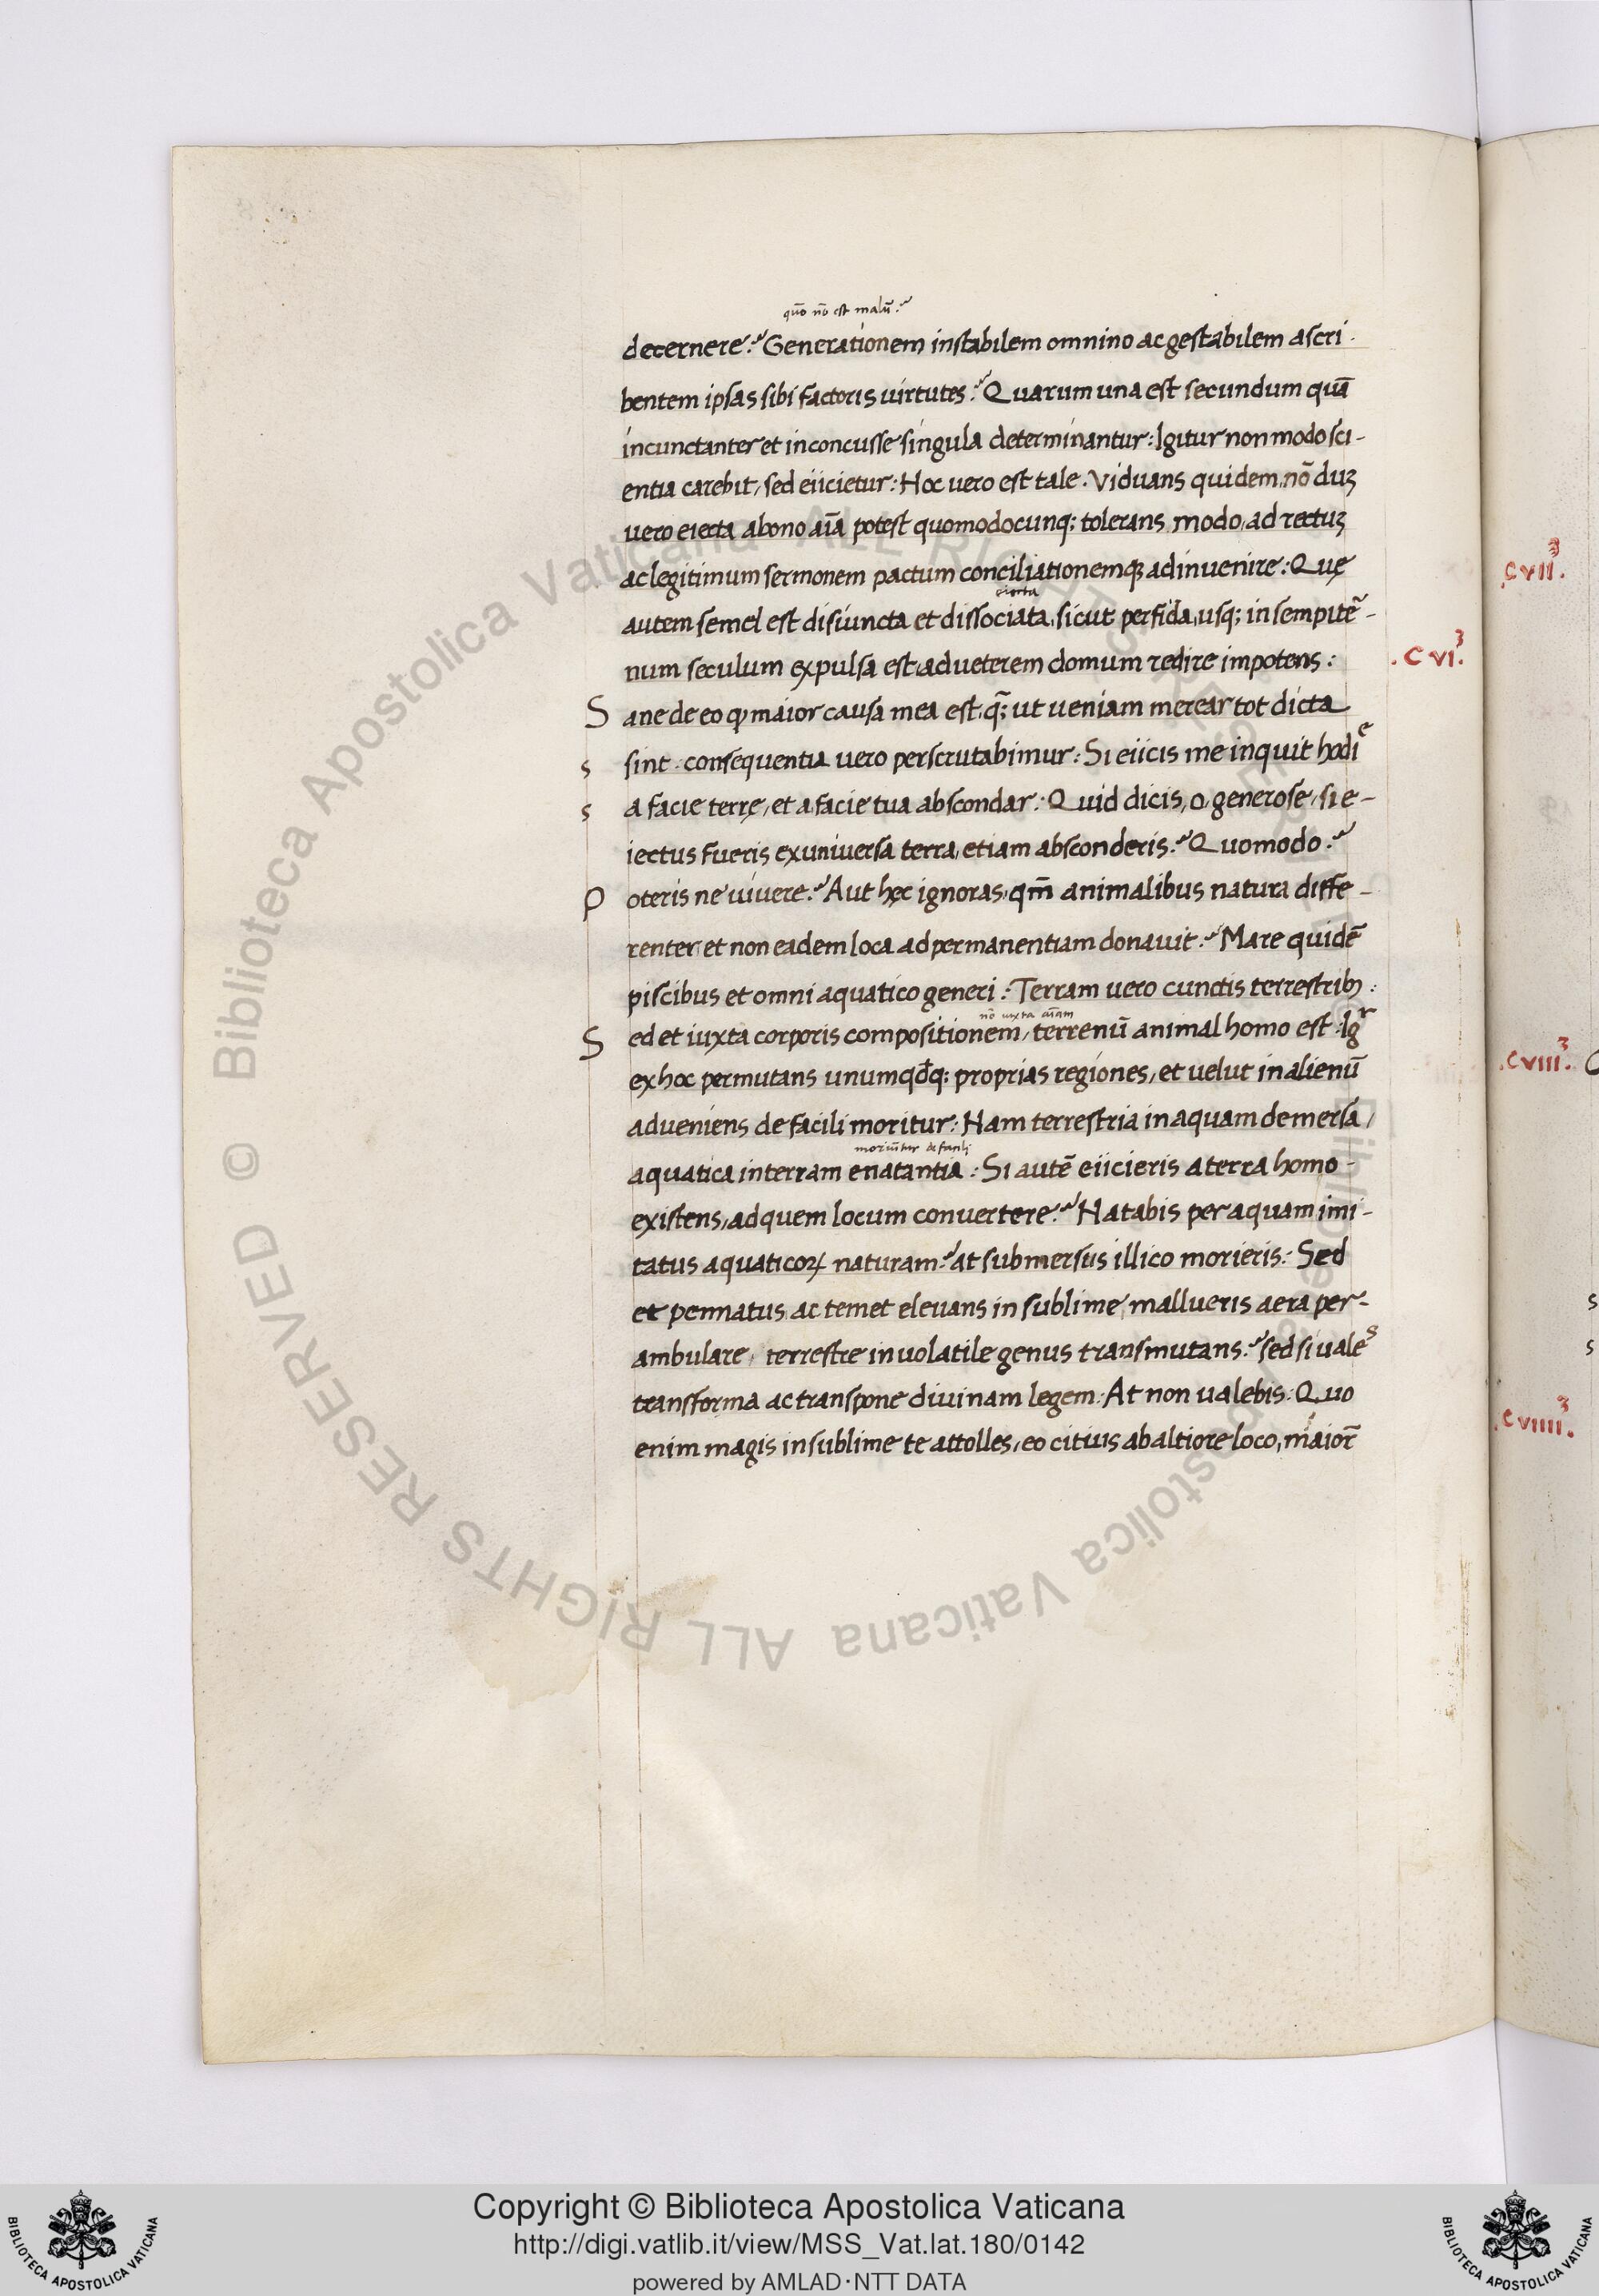 quō nō est malū:
decernere: Generationem instabilem omnino ac gestabilem ascri-
bentem ipsas sibi factoris uirtutes: Quarum una est secundum quā
incunctanter et inconcusse singula determinantur: Igitur non modo sci-
entia carebit, sed eiicietur: Hoc uero est tale. Viduans quidem, nō duʒ
uero eiecta a bono aīa potest quomodocunq; tolerans modo, ad rectuʒ
ac legitimum sermonem pactum conciliationemqʒ adinuenire: Quę
eiecta
autem semel est disiuncta et dissociata, sicut perfida, usq; in sempitē-
num seculum expulsa est, ad ueterem domum redire impotens:
.CVI³.
Sane de eo ꝙ maior causa mea est, q̄; ut ueniam merear tot dicta
s sint. consequentia uero perscrutabimur: Si eiicis me inquit hodie
s a facie terrę, et a facie tua abscondar: Quid dicis, o, generose, si e-
iectus fueris ex uniuersa terra, etiam absconderis: Quomodo:
Poteris ne uiuere: Aut hęc ignoras, qm̄ animalibus natura diffe-
renter et non eadem loca ad permanentiam donauit: Mare quidē
piscibus et omni aquatico generi: Terram uero cunctis terrestribʒ:
nō iuxta aīam
Sed et iuxta corporis compositionem, terrenū animal homo est: Igr
ex hoc permutans unumqđq; proprias regiones, et uelut in alienū
adueniens de facili moritur: Nam terrestria in aquam demersa,
moriūtur de facili
aquatica in terram enatantia: Si autē eiicieris a terra homo-
existens, ad quem locum conuertere: Natabis per aquam imi-
tatus aquaticoꝝ naturam: at submersus illico morieris: Sed
et pennatus, ac temet eleuans in sublime, mallueris aera per-
ambulare, terrestre in uolatile genus transmutans: sed si uales
transforma ac transpone diuinam legem: At non ualebis: Quo
enim magis in sublime te attolles, eo citius ab altiore loco, maior̄
.CVII³.
.CVIII³.
s
s
.CVIIII³.
© Biblioteca Apostolica Vaticana ALL RIGHTS RESERVED
© Biblioteca Apostolica Vaticana ALL RIGHTS RESERVED
Copyright © Biblioteca Apostolica Vaticana
http://digi.vatlib.it/view/MSS_Vat.lat.180/0142
powered by AMLAD·NTT DATA
BIBLIOTECA APOSTOLICA VATICANA
BIBLIOTECA APOSTOLICA VATICANA